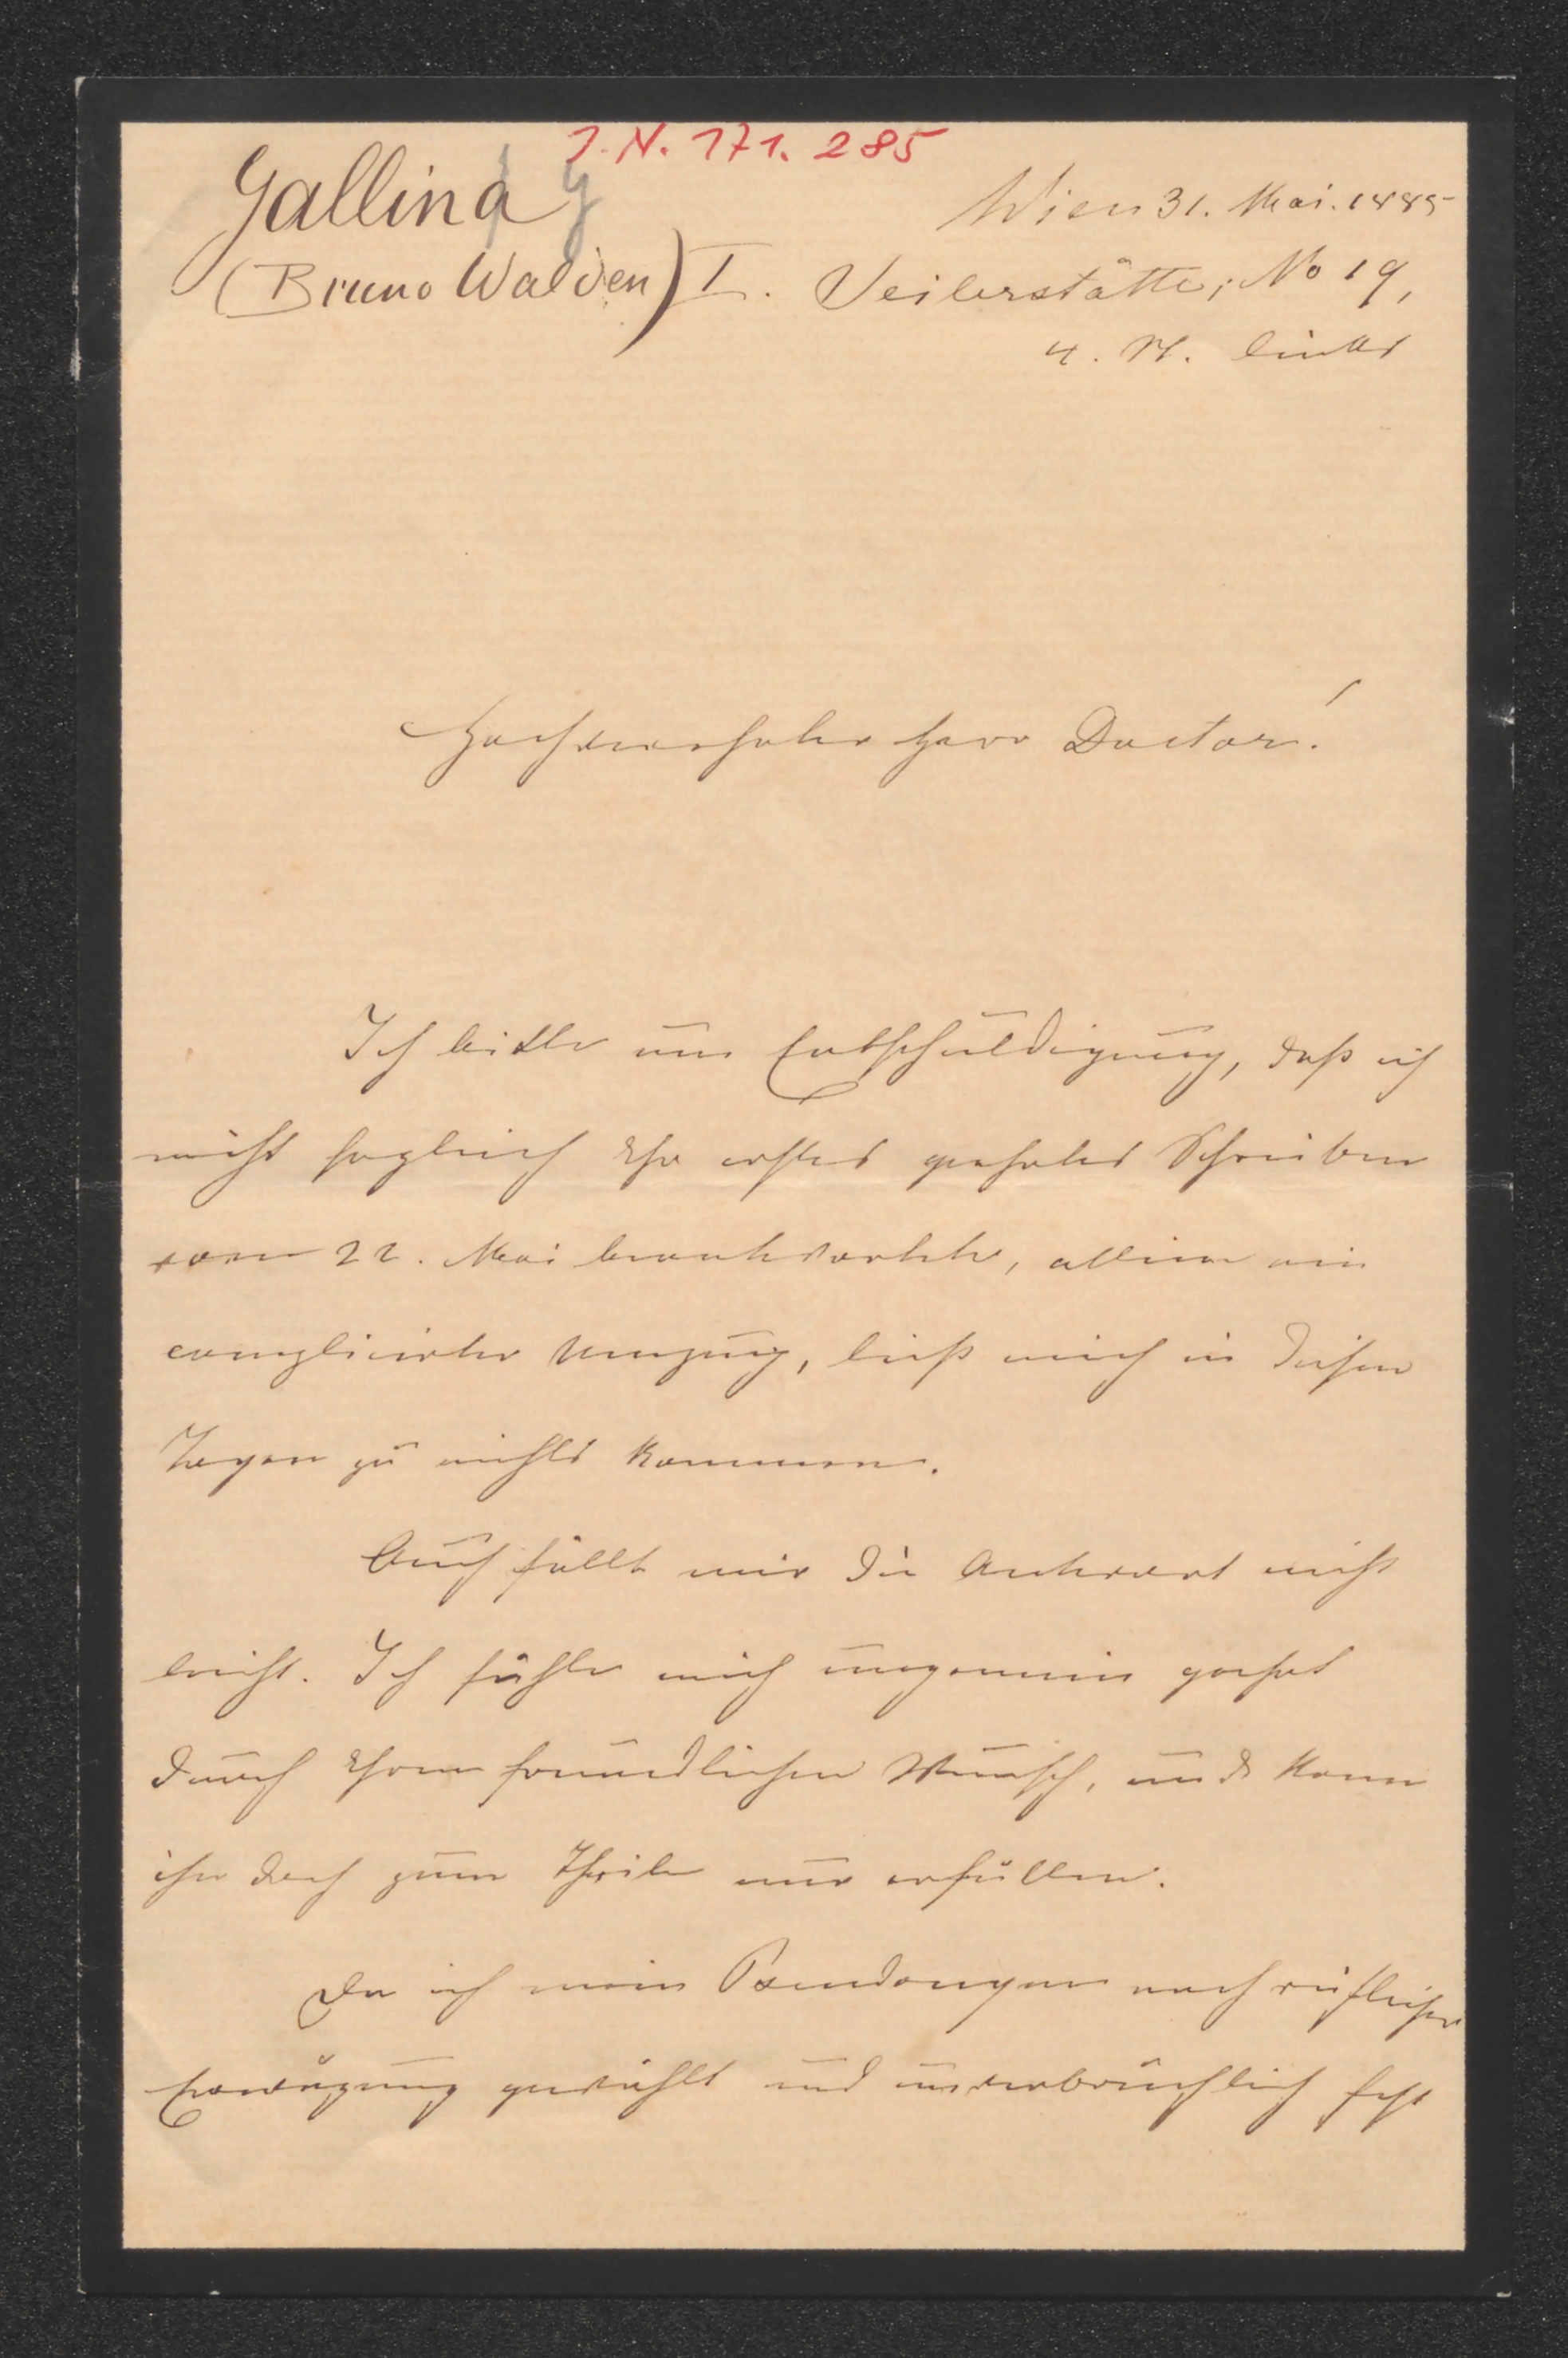 J. N. 171.285
Gallina G
(Bruno Walden)
Wien 31. Mai. 1885
I. Seilerstätte, No 19,
4. St. links
Hochverehrter Herr Doctor!
Ich bitte um Entschuldigung, daß ich
nicht sogleich Ihr erstes geehrtes Schreiben
vom 22. Mai beantwortete, allein ein
complicirter Umzug, ließ mich in diesen
Tagen zu nichts kommen.
Auch fällt mir die Antwort nicht
leicht. Ich fühle mich ungemein geehrt
durch Ihren freundlichen Wunsch, und kann
ihn doch zum Theile nur erfüllen.
Da ich mein Pseudonym nach reiflicher
Erwägung gewählt und unverbrüchlich fest